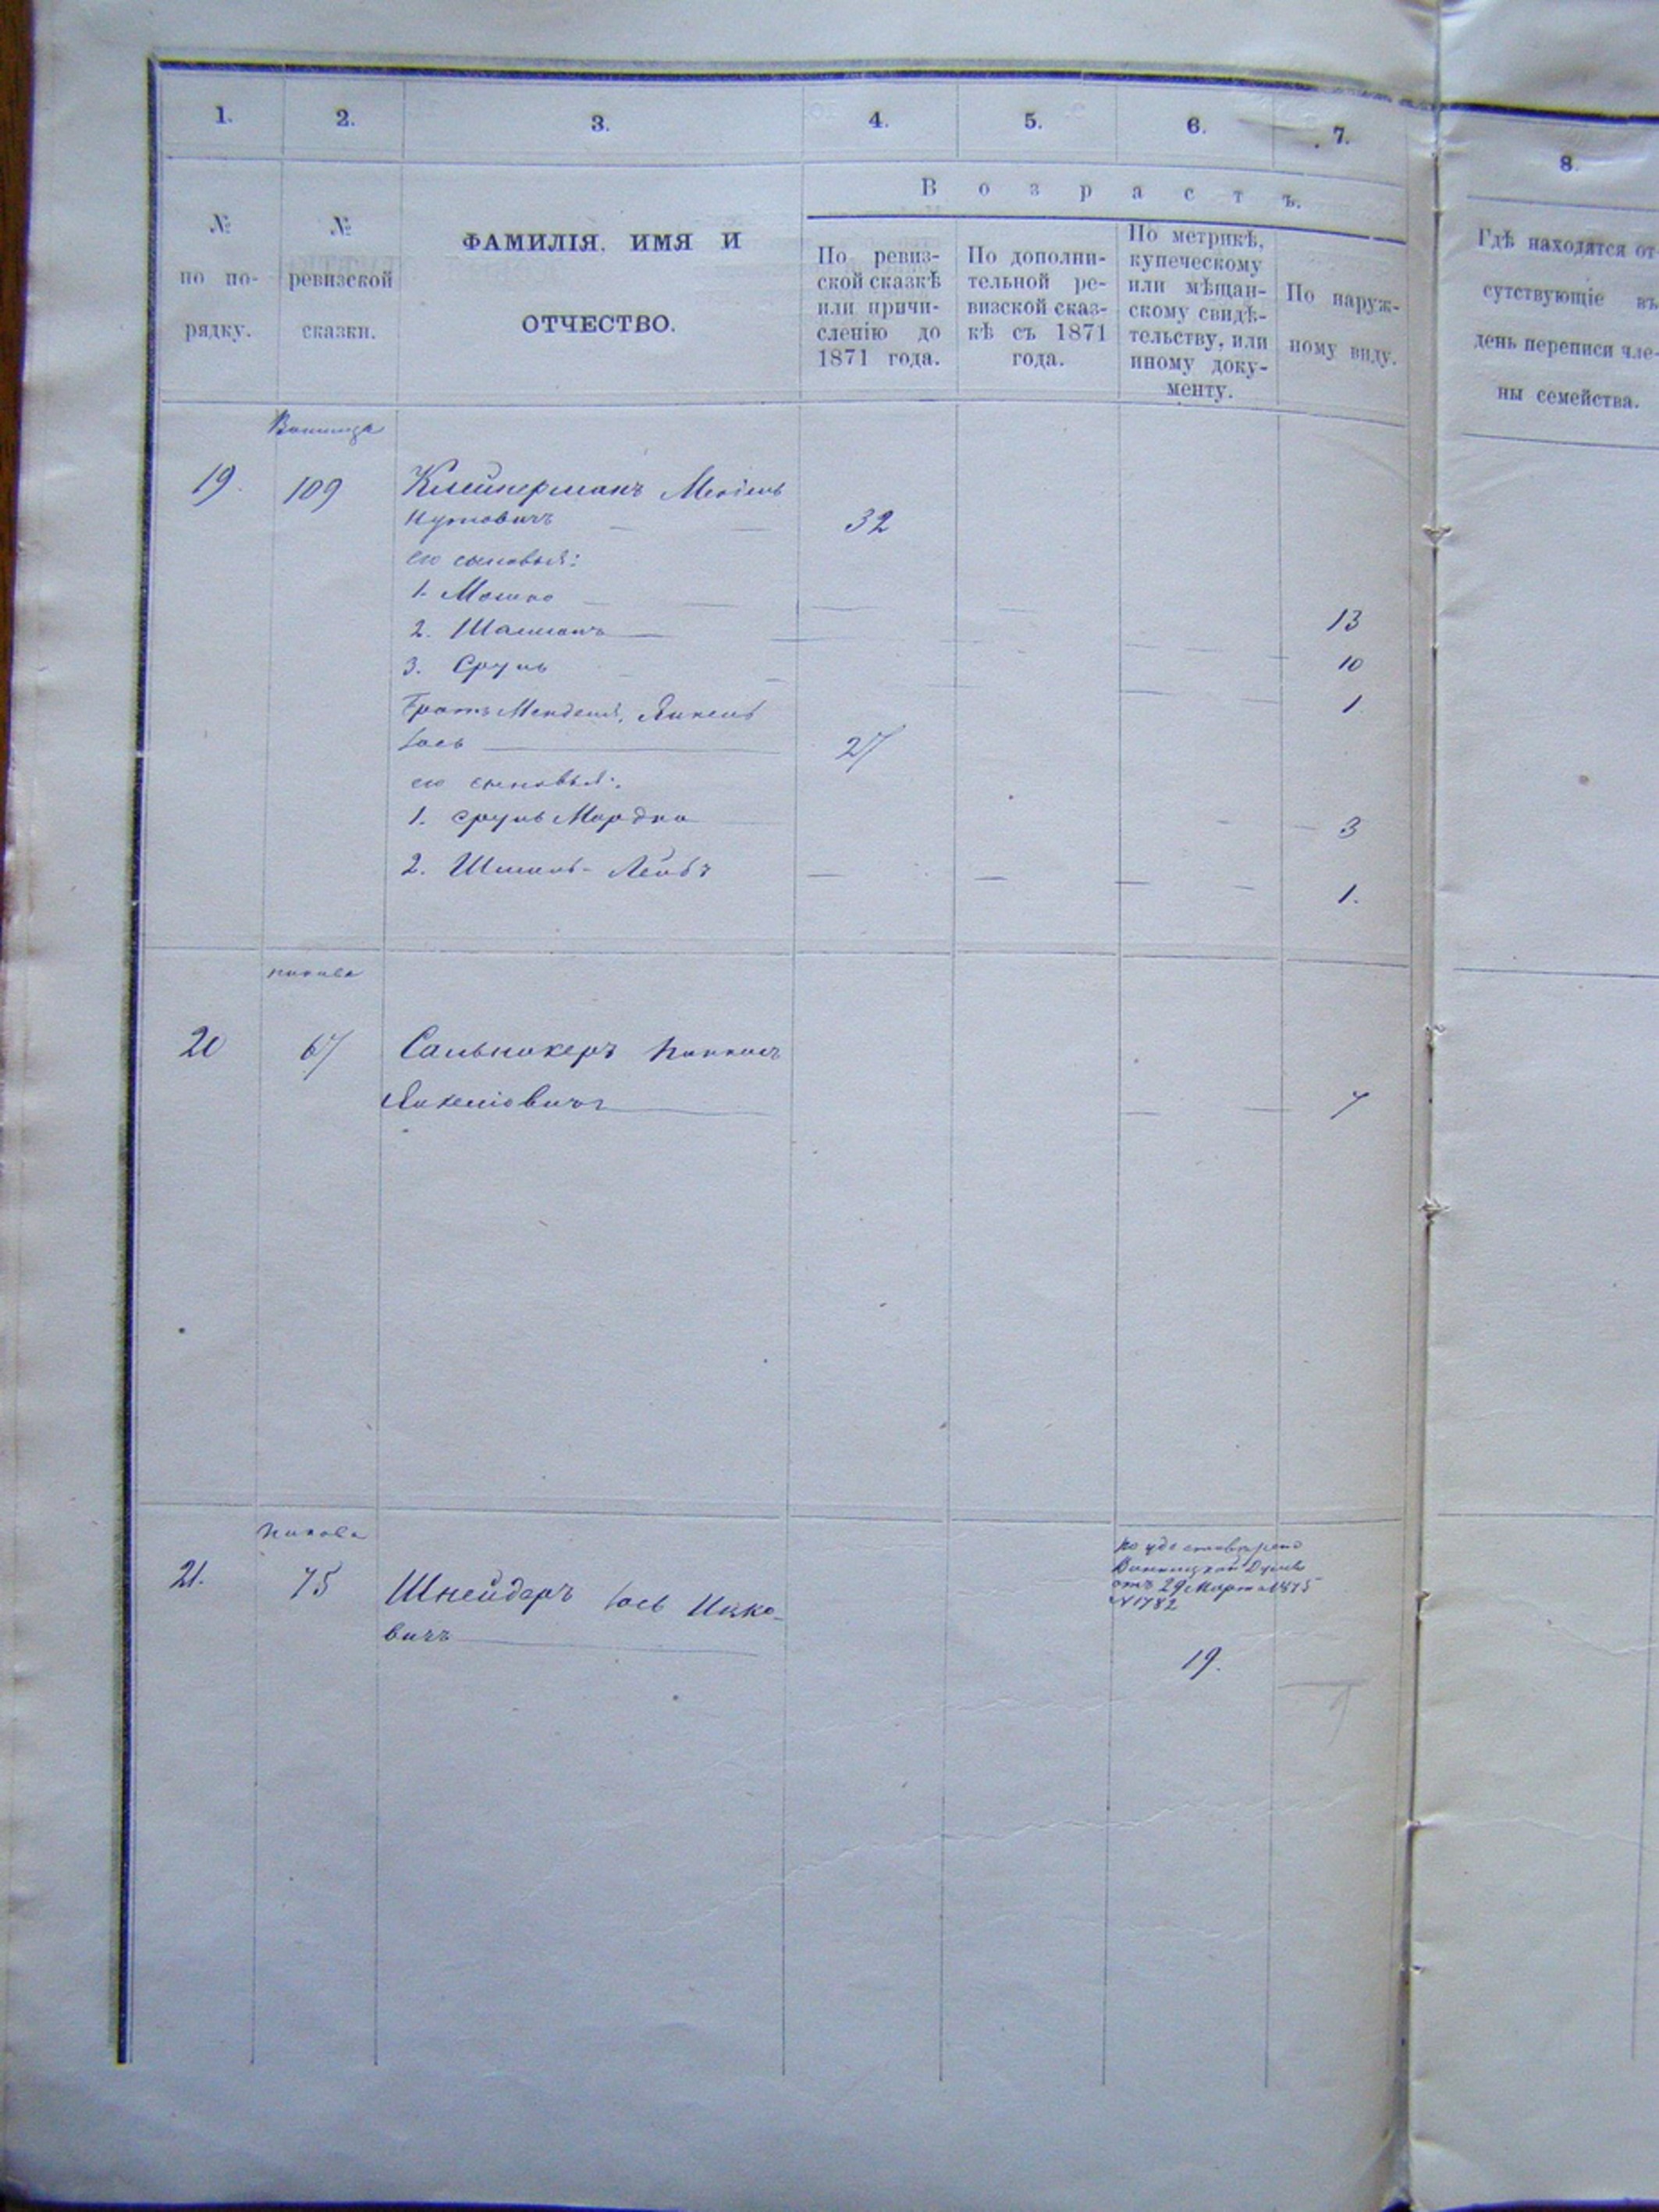 1. 2. 3. 4. 5. 6. 7. 8.
№ по по-
рядку.
№
ревизской
сказки.
ФАМИЛІЯ, ИМЯ И
ОТЧЕСТВО.
Возрастъ.
По ревиз-
ской сказкѣ
или причи-
сленію до
1871 года.
По дополни-
тельной ре-
визской сказ-
кѣ съ 1871
года.
По метрикѣ,
купеческому
или мѣщан-
скому свидѣ-
тельству, или
иному доку-
менту.
По наруж-
ному виду.
Гдѣ находятся от-
сутствующіе въ
день переписи чле-
ны семейства.
Винница
19. 109 Клейнерманъ Мендель
32
его сыновья:
1. Мошко 13
2. Шаиманъ 10
3. Сруль 1
Братъ Менделя, Янкель
Іось 27
его сыновья:
1. Сруль Мордко 3
2. Лейбъ 1.
Пикова
20 67 Сальникеръ Пинкасъ
Янкеліовичъ 7
Пикова
21. 75 Шнейдеръ Іось Ицко-
вичъ 19.
по удостовѣренію
Винницкой Думы
отъ 29 Марта 1875
№ 1782